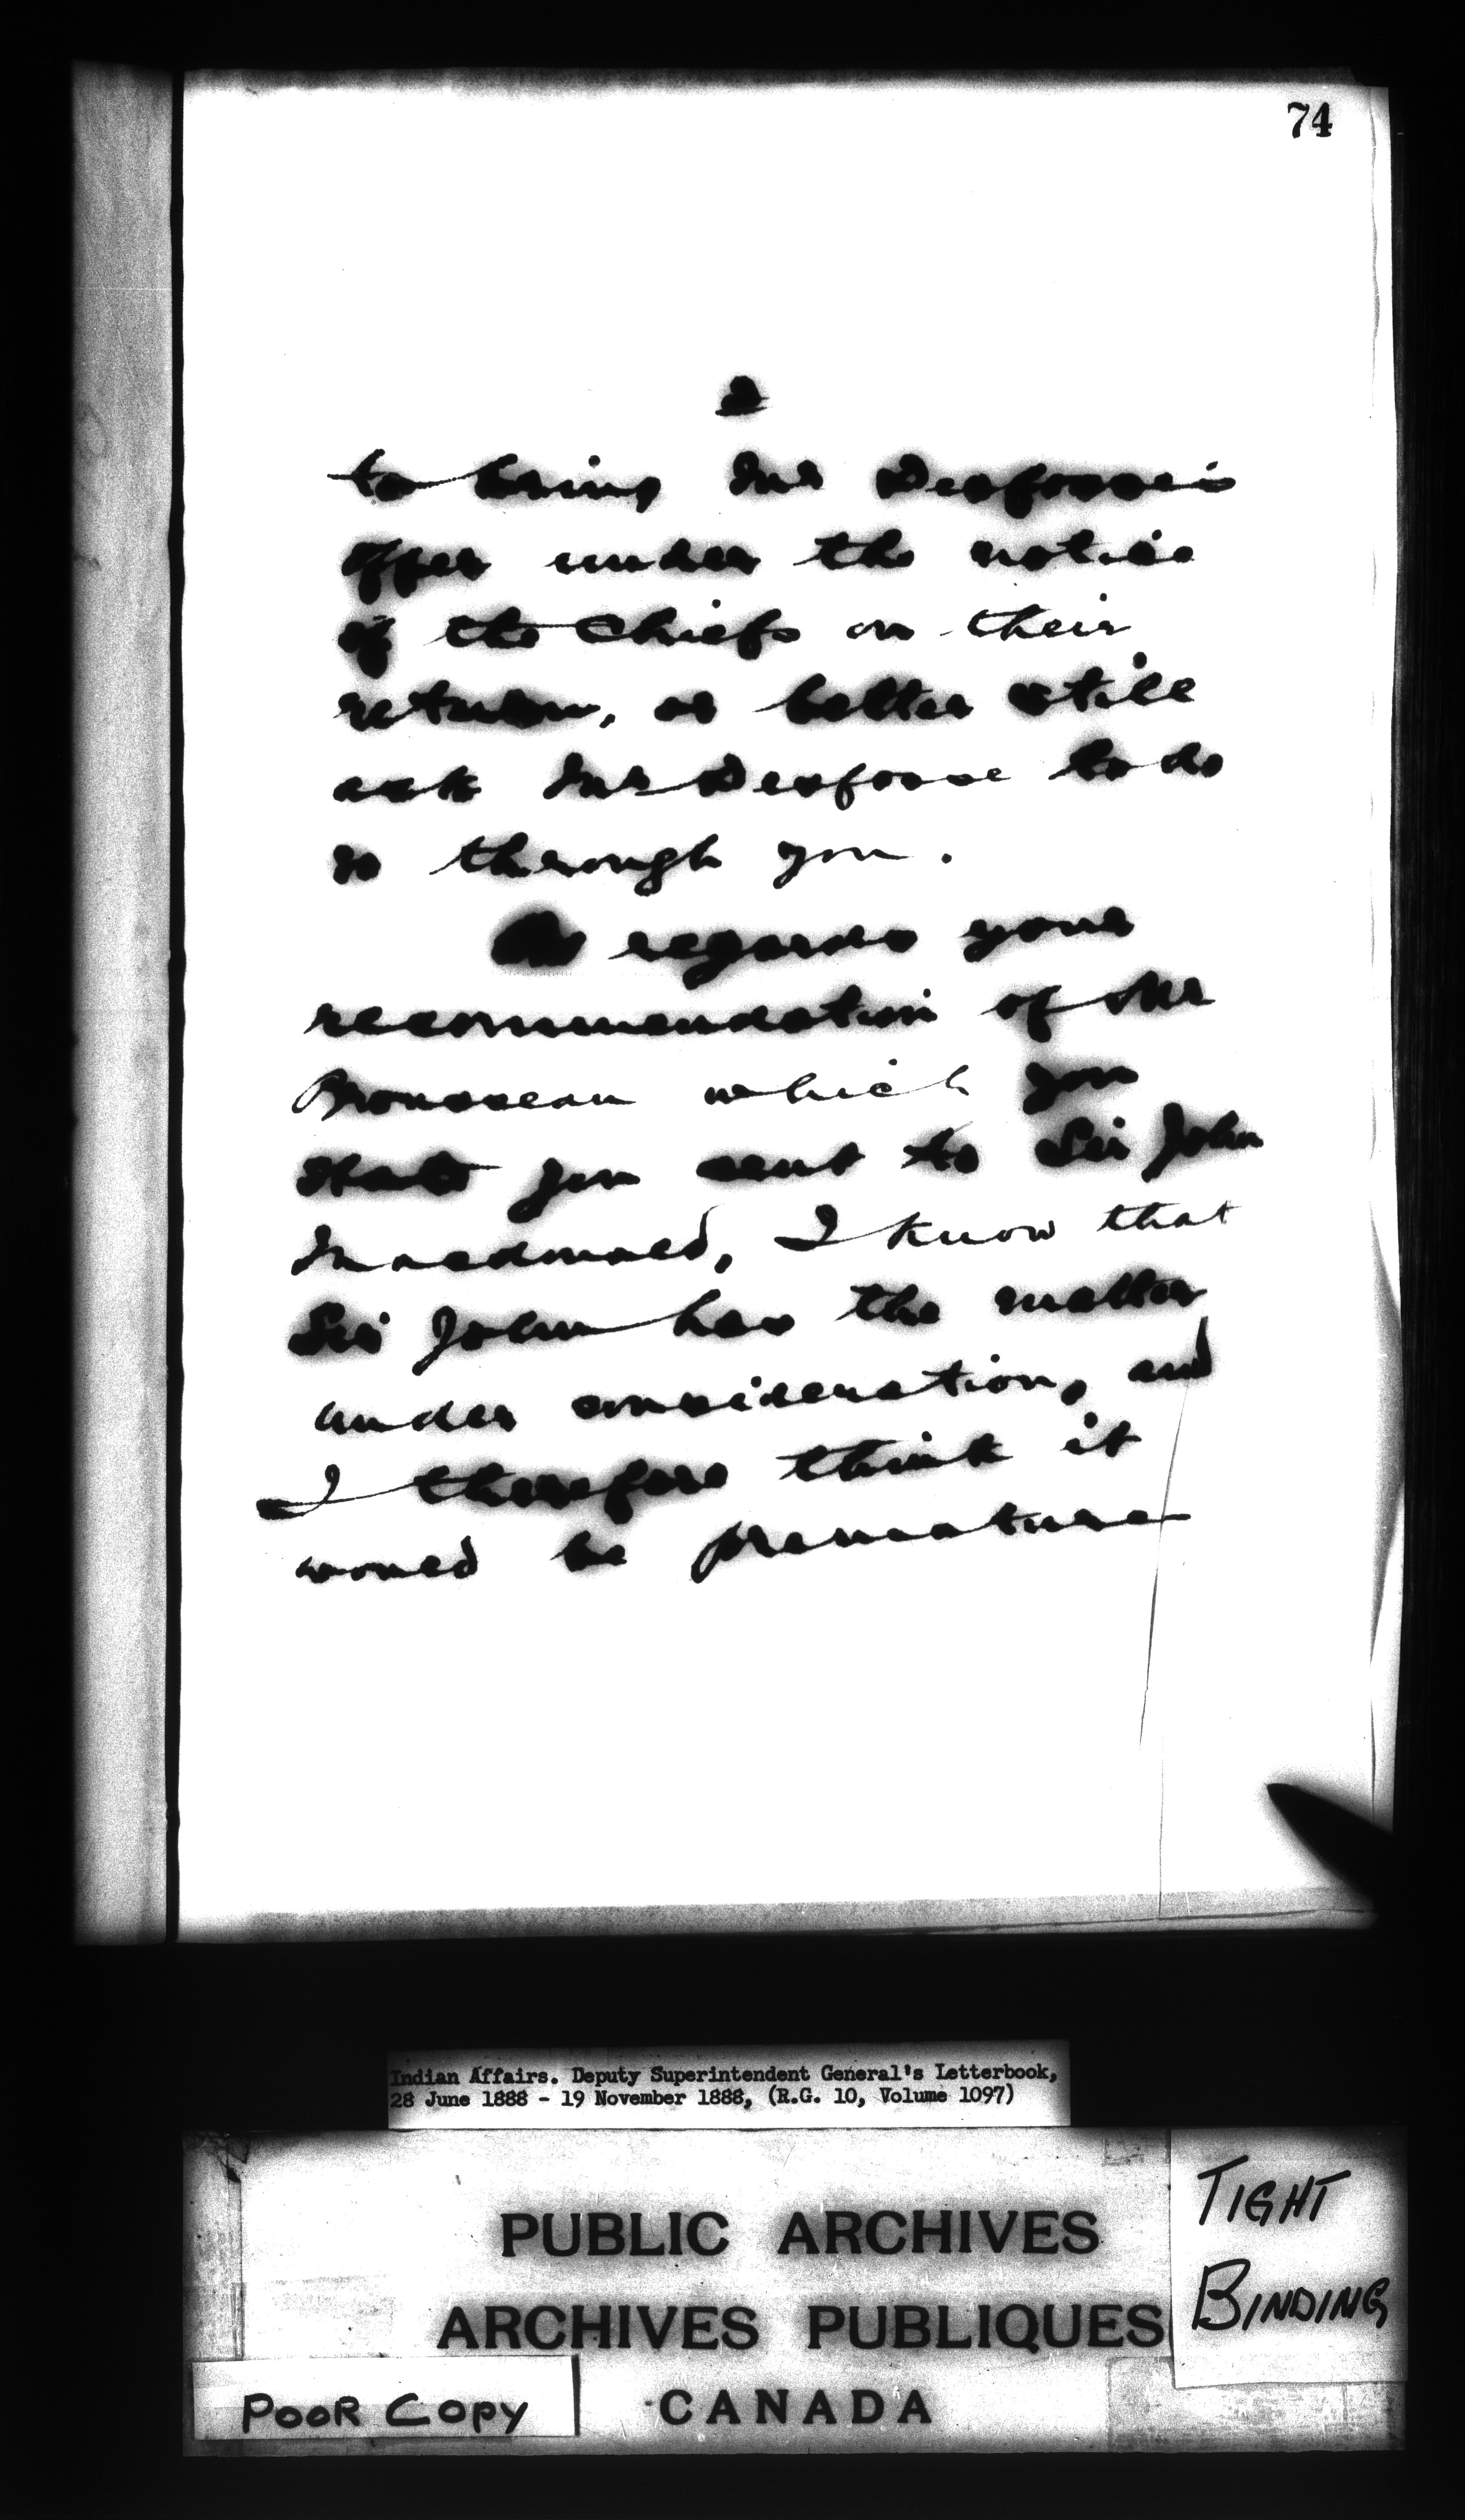 74
2
to bring Mr Desfosses
offer under the notice
of the Chiefs on their
return, or better still
ask Mr Desfosse to do
so through you.
As regards your
recommendation of Mr
Brousseau which you
state you sent to Sir John
Macdonald, I know that
Sir John has the matter
under consideration, and
I therefore think it
would be premature
Indian Affairs. Deputy Superintendent General's Letterbook,
28 June 1888 - 19 November 1888, (R.G. 10, Volume 1097)
PUBLIC ARCHIVES
ARCHIVES PUBLIQUES
CANADA
TIGHT
BINDING
POOR COPY